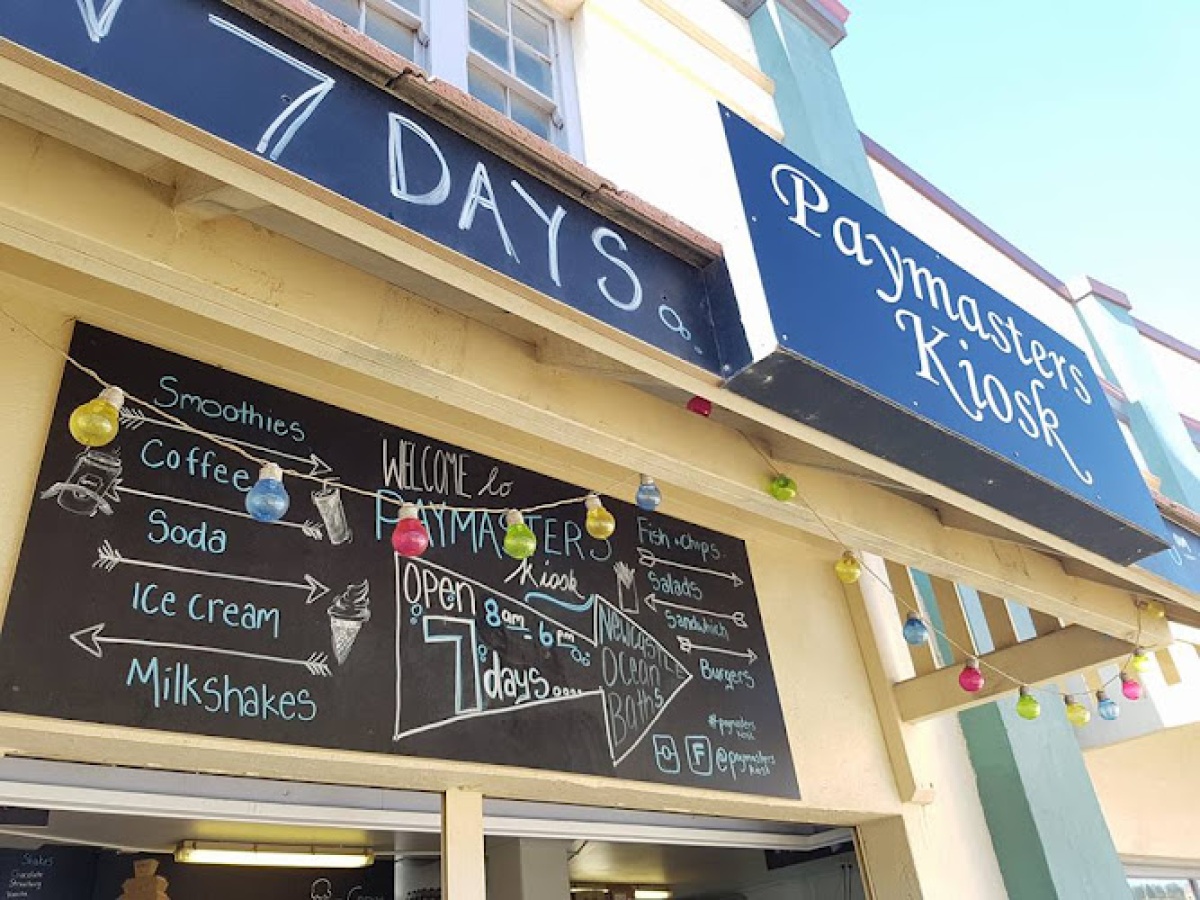 7 DAYS
Paymasters
Kiosk
Smoothies
Coffee
Soda
Ice cream
Milkshakes
WELCOME to
PAYMASTERS
Kiosk
Open
8am - 6pm
7
days....
Newcastle
Ocean
Baths
Fish & Chips
Salads
Sandwich
Burgers
#paymasters
kiosk
@paymasters
kiosk
Shakes
Chocolate
Strawberry
Vanilla